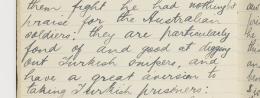 them fight he had nothing but
praise for the Australian
soldiers: they are particularly
fond of and good at digging
out Turkish snipers, and
have a great aversion to
taking Turkish prisoners: